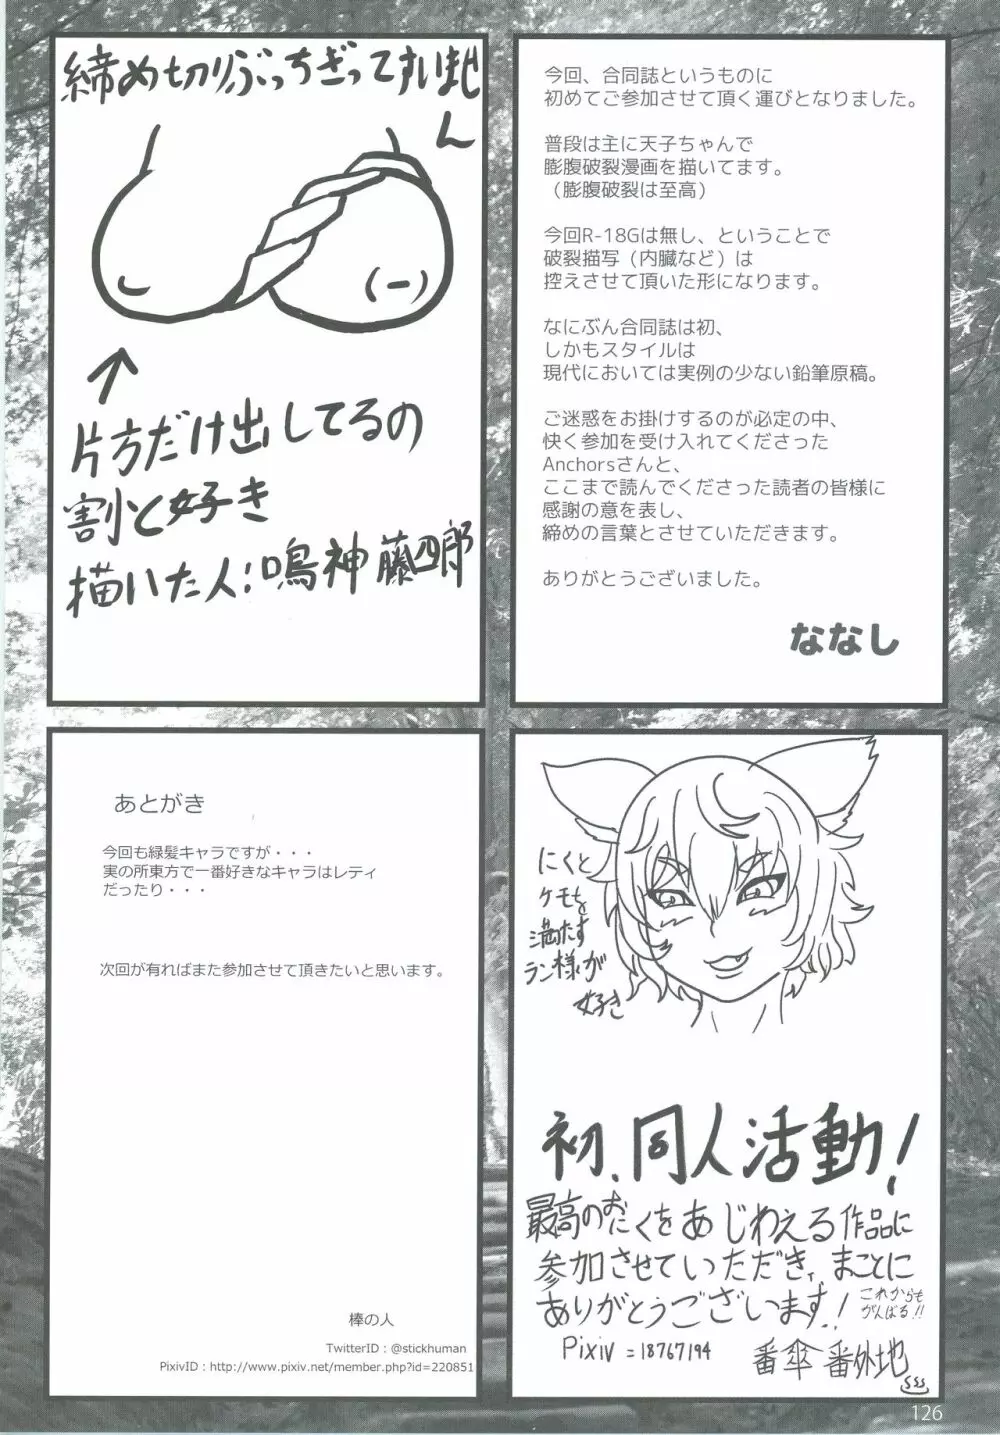 今回、合同誌というものに
初めてご参加させて頂く運びとなりました。
普段は主に天子ちゃんで
膨腹破裂漫画を描いてます。
（膨腹破裂は至高）
今回R-18Gは無し、ということで
破裂描写（内臓など）は
控えさせて頂いた形になります。
なにぶん合同誌は初、
しかもスタイルは
現代においては実例の少ない鉛筆原稿。
ご迷惑をお掛けするのが必定の中、
快く参加を受け入れてくださった
Anchorsさんと、
ここまで読んでくださった読者の皆様に
感謝の意を表し、
締めの言葉とさせていただきます。
ありがとうございました。
ななし
締め切りぶっちぎってすいませ
ん
片方だけ出してるの
割と好き
描いた人:鳴神藤四郎
にくと
ケモを
満たす
ラン様が
好き
初、同人活動!
最高のおにくをあじわえる作品に
参加させていただき、まことに
ありがとうございます!
これからも
がんばる!!
Pixiv=18767194
番傘 番外地
あとがき
今回も緑髪キャラですが・・・
実の所東方で一番好きなキャラはレティ
だったり・・・
次回が有ればまた参加させて頂きたいと思います。
棒の人
TwitterID：@stickhuman
PixivID：http://www.pixiv.net/member.php?id=220851
126